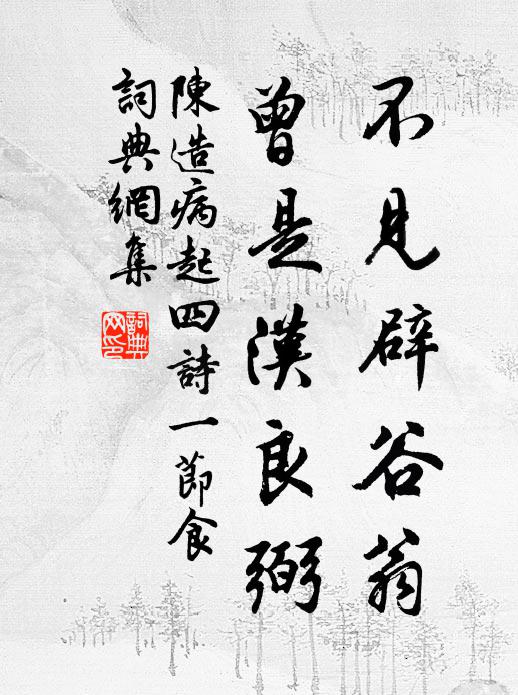 不見辟谷翁
曾是漢良弼
陳造病起四詩一節食
詞典網集
詞典網印